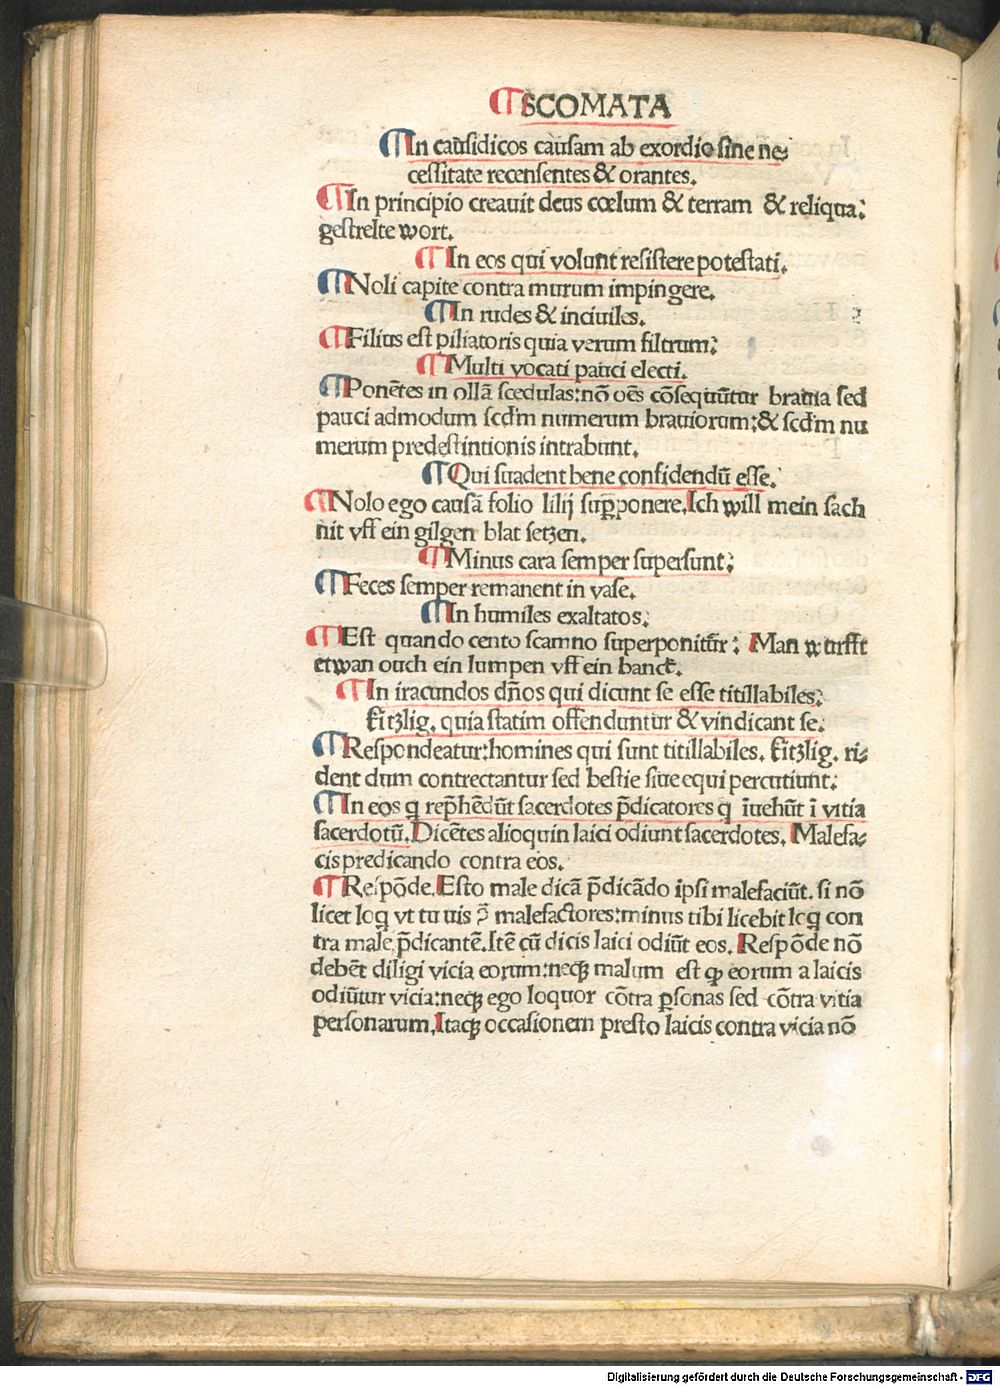 ¶SCOMATA
¶In caūsidicos caūsam ab exordio sine ne⸗
cessitate recensentes & orantes.
¶In principio creauit deus cœlum & terram & reliqua:
gestrelte wort.
¶In eos qui volunt resistere potestati.
¶Noli capite contra murum impingere.
¶In rudes & inciuiles.
¶Filius est piliatoris quia verum filtrum:
¶Multi vocati pauci electi.
¶Ponētes in ollā scedulas: nō oēs cōsequūtur brauia sed
pauci admodum scd'm numerum brauiorum: & scd'm nu
merum predestintionis intrabunt.
¶Qui suadent bene confidendū esse.
¶Nolo ego causā folio lilij sup̄ponere. Ich will mein sach
nit vff ein gilgen blat setzen.
¶Minus cara semper supersunt:
¶Feces semper remanent in vase.
¶In humiles exaltatos:
¶Est quando cento scamno superponitūr: Man wurfft
etwan ouch ein lumpen vff ein banck.
¶In iracundos dn̄os qui dicunt se esse titillabiles:
kitzlig. quia statim offenduntur & vindicant se:
¶Respondeatur: homines qui sunt titillabiles. kitzlig. ri⸗
dent dum contrectantur sed bestie siue equi percutiunt:
¶In eos q̨ rep̄hēdūt sacerdotes p̄dicatores q̨ īuehūt ī vitia
sacerdotū. Dicētes alioquin laici odiunt sacerdotes. Malefa⸗
cis predicando contra eos.
¶Respōde. Esto male dicā p̄dicādo ipsi malefaciūt. si nō
licet loq̨ vt tu uis ꝯ̄ malefactores: minus tibi licebit loq̨ con
tra male p̄dicantē. Itē cū dicis laici odiūt eos. Respōde nō
debēt diligi vicia eorum: neqꝫ malum est ꝙ eorum a laicis
odiūtur vicia: neqꝫ ego loquor cōtra ꝑsonas sed cōtra vitia
personarum. Itaqꝫ occasionem presto laicis contra vicia nō
Digitalisierung gefördert durch die Deutsche Forschungsgemeinschaft - DFG